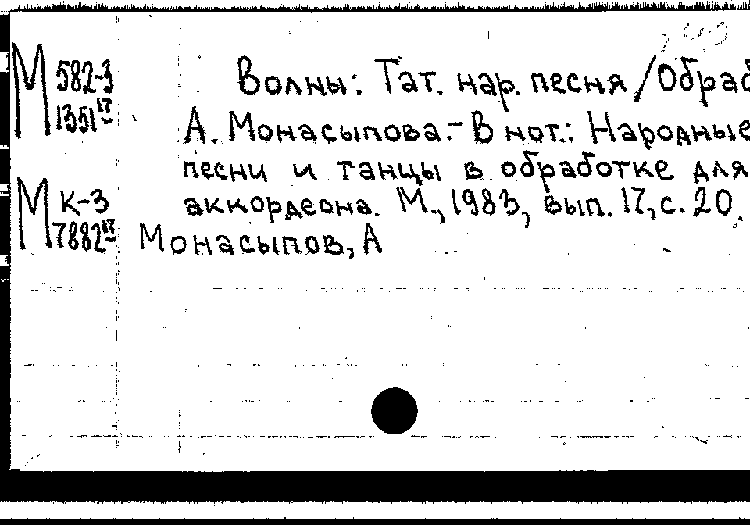 М 582-3
1351 17
Волны: Тат. нар. песня / Обраб
А. Монасыпова. - В нот.: Народные
песни и танцы в обработке для
аккордеона. М., 1983, вып. 17, с. 20.
М К-3
7882 17
Монасыпов, А